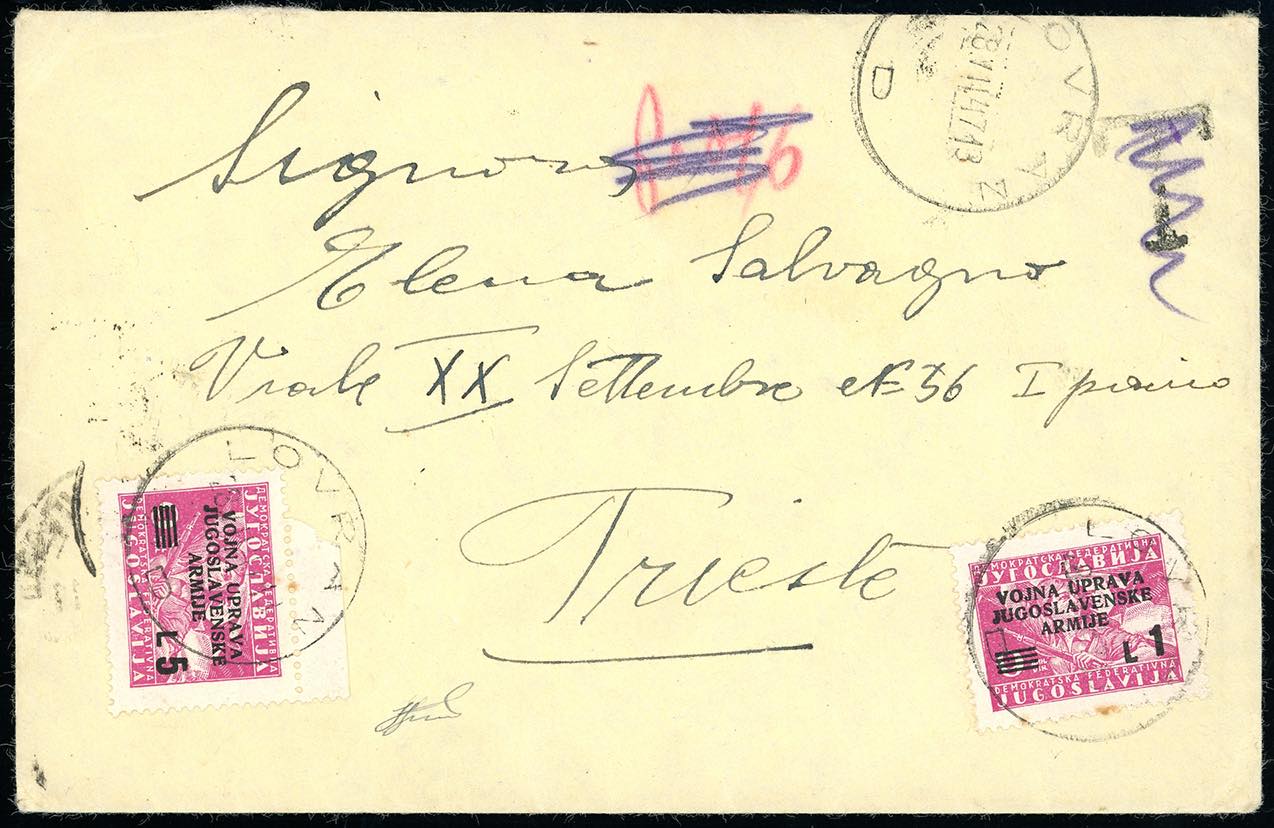 LOVRAN
28.VII.47.13
D
T
Signora
Elena Salvagno
Viale XX Settembre No 36 I piano
Trieste
LOVRAN
ДЕМОКРАТСКА ФЕДЕРАТИВНА
ЈУГОСЛАВИЈА
VOJNA UPRAVA
JUGOSLAVENSKE
ARMIJE
L 5
DEMOKRATSKA FEDERATIVNA
JUGOSLAVIJA
LOVRAN
ДЕМОКРАТСКА ФЕДЕРАТИВНА
ЈУГОСЛАВИЈА
VOJNA UPRAVA
JUGOSLAVENSKE
ARMIJE
L 1
DEMOKRATSKA FEDERATIVNA
JUGOSLAVIJA